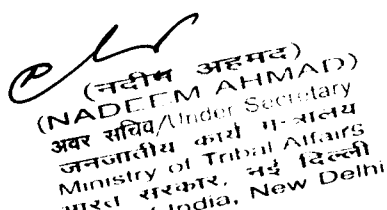 (नदीम अहमद)
(NADEEM AHMAD)
अवर सचिव/Under Secretary
जनजातीय कार्य मंत्रालय
Ministry of Tribal Affairs
भारत सरकार, नई दिल्ली
India, New Delhi